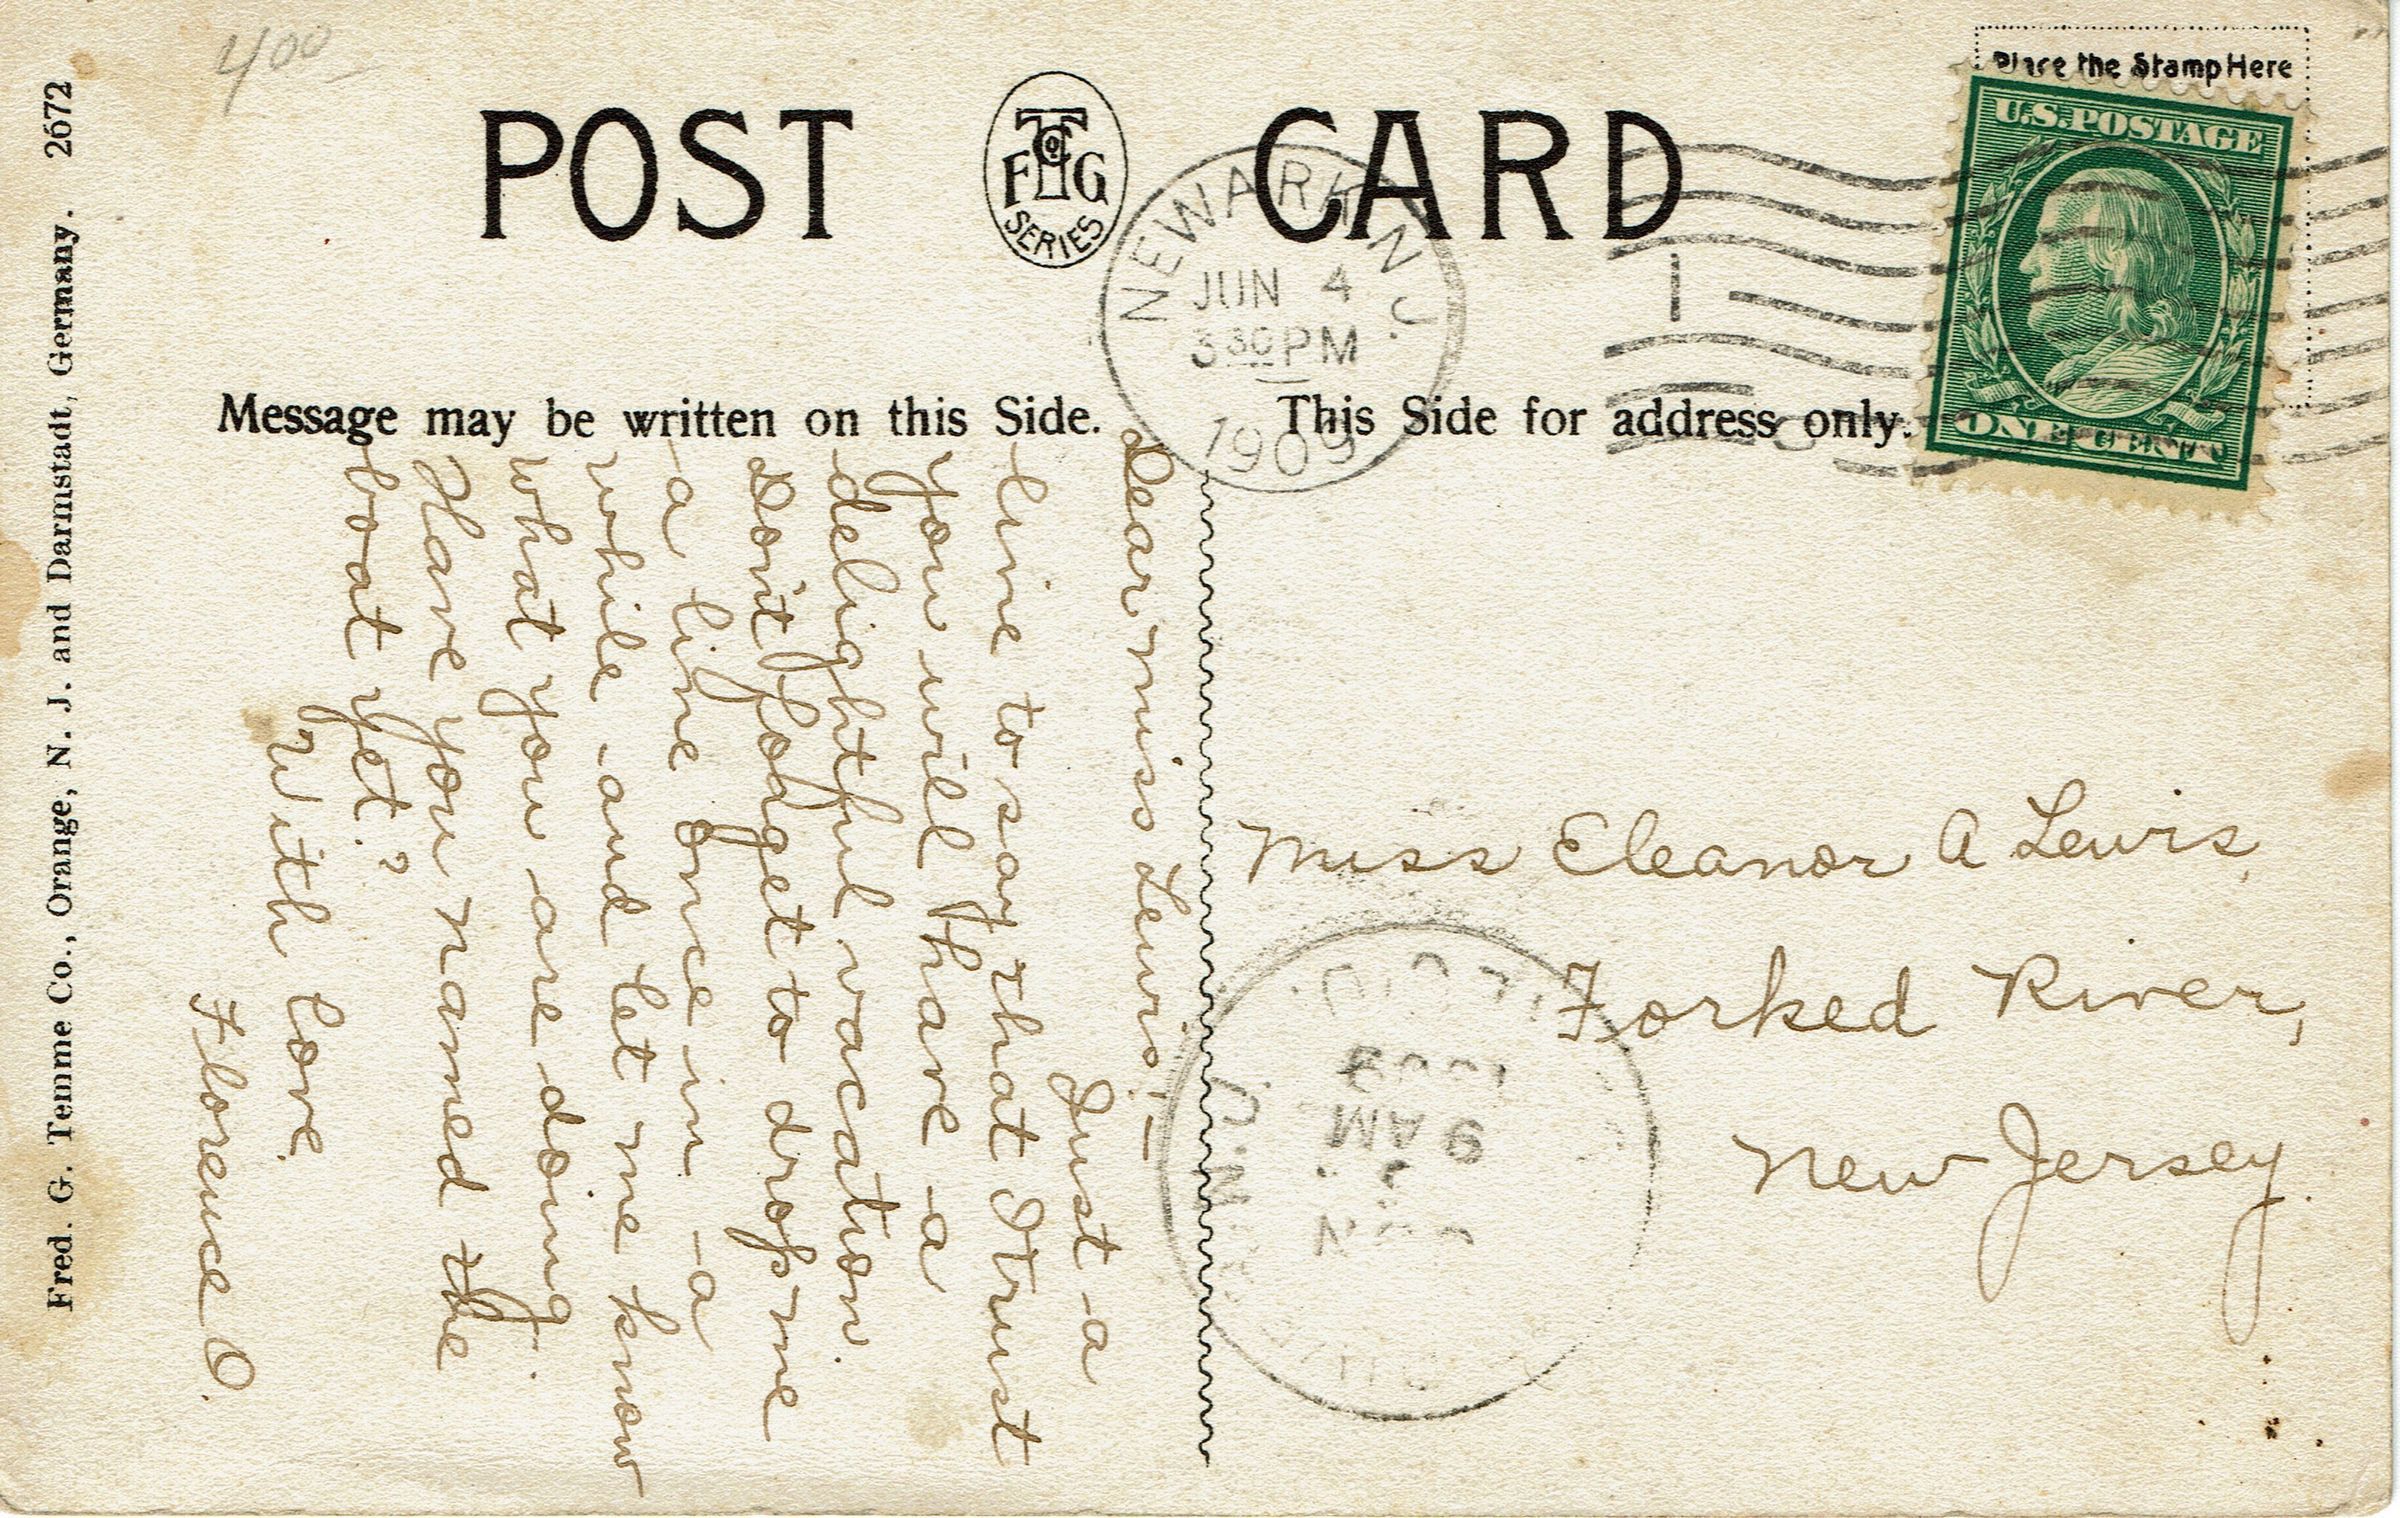 400
Fred. G. Temme Co., Orange, N. J. and Darmstadt, Germany. 2672
POST CARD
F T Co G
SERIES
Place the Stamp Here
U.S. POSTAGE
ONE CENT
NEWARK N.J.
JUN 4
3 30 PM
1909
1
Message may be written on this Side.
This Side for address only.
Dear Miss Lewis:—
Just a
line to say that I trust
you will have a
delightful vacation.
Don't forget to drop me
a line once in a
while and let me know
what you are doing.
Have you named the
boat yet?
With love
Florence O.
Miss Eleanor A Lewis,
Forked River,
New Jersey.
9 AM
1909
N.J.